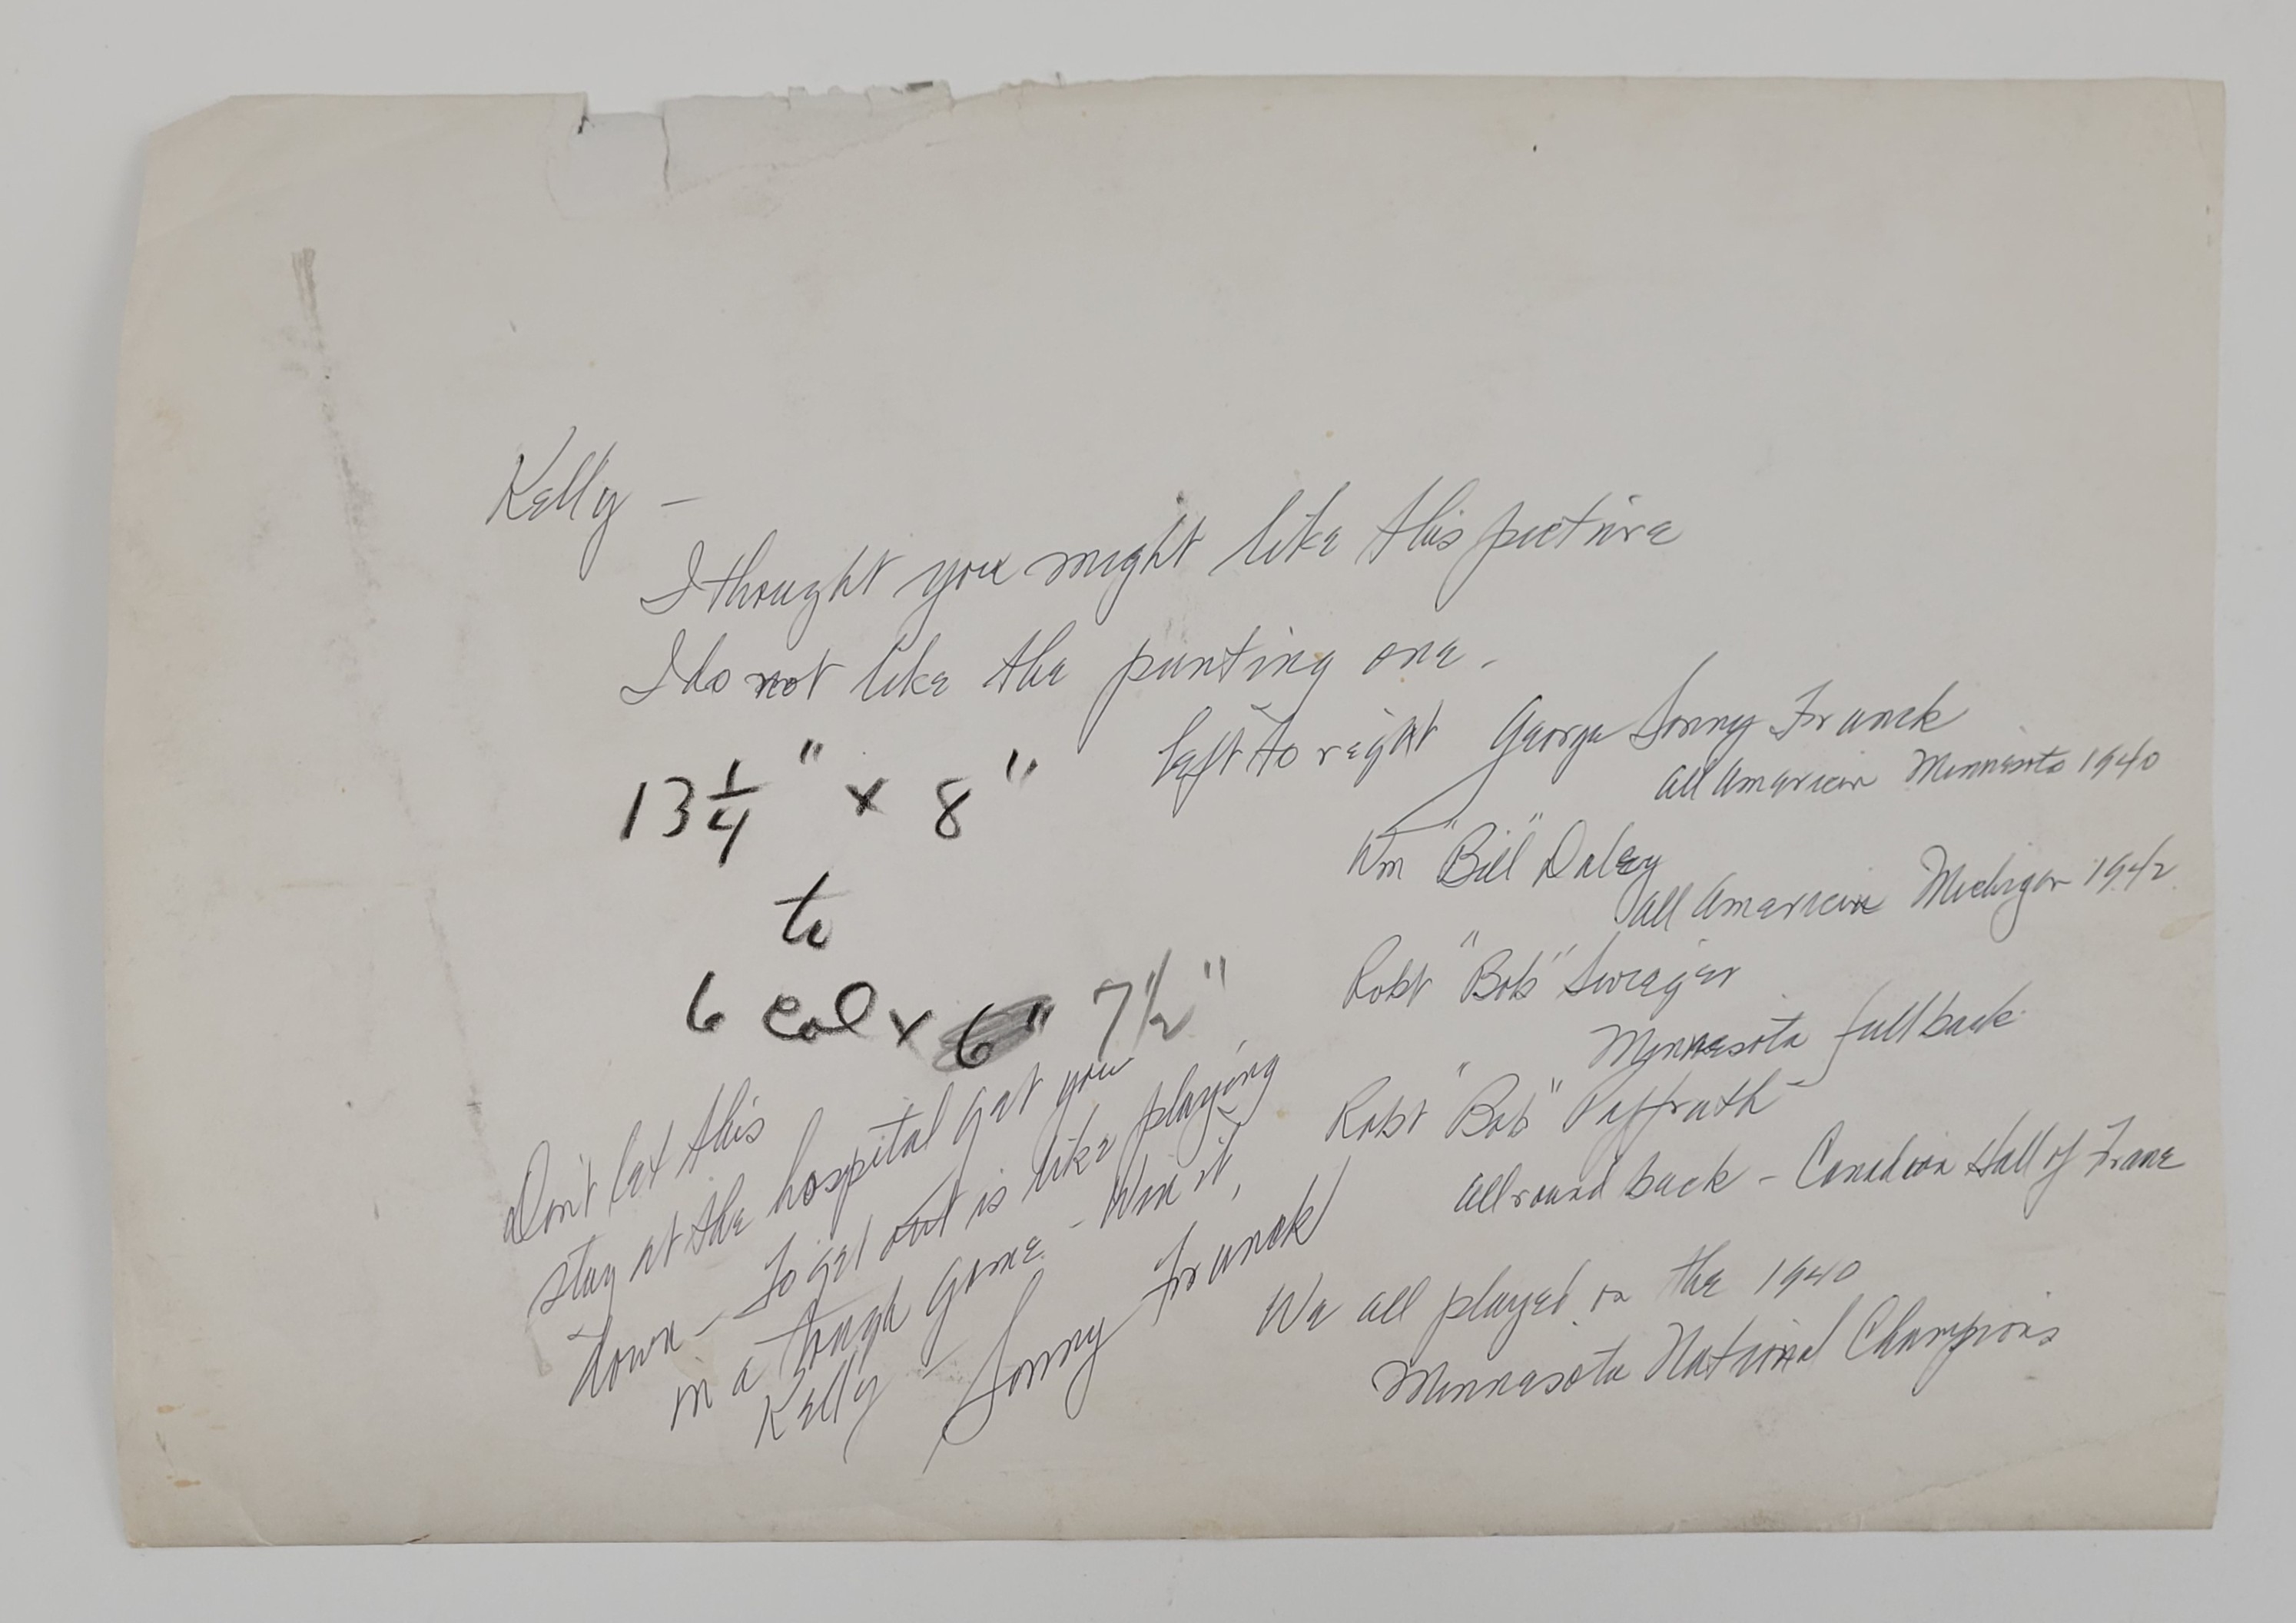 Kelly –
I thought you might like this picture
I do not like the punting one.
13 1/4" x 8"
to
6 col x 6" 7 1/2"
left to right George Sonny Franck
All American Minnesota 1940
Wm "Bill" Daley
All American Michigan 1942
Robt "Bob" Sweiger
Minnesota fullback
Robt "Bob" Paffrath
All round back – Canadian Hall of Fame
We all played on the 1940
Minnesota National Champions
Don't let this
stay at the hospital get you
down – To get out is like playing
in a tough game – Win it,
Kelly – Sonny Franck